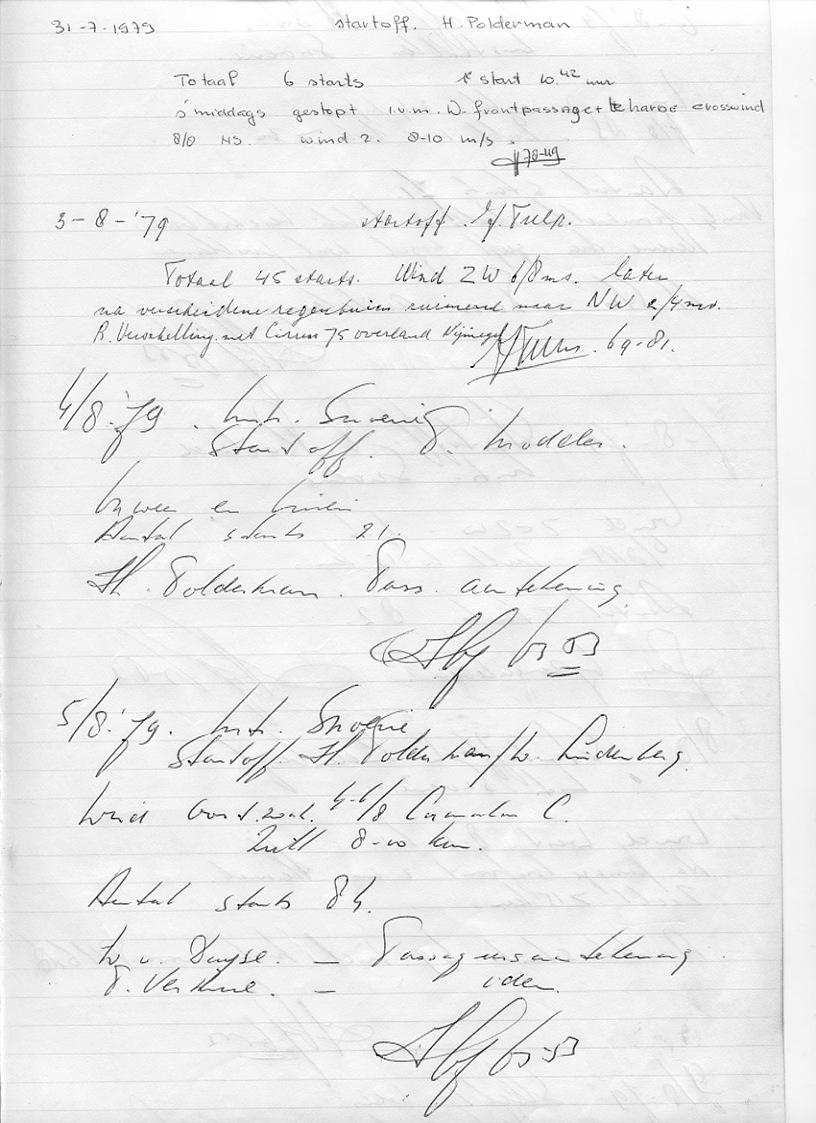 31-7-1979 startoff. H. Polderman
Totaal 6 starts 1e start 10.42 uur
s'middags gestopt i.v.m. W. frontpassage + te harde crosswind
8/8 NS. wind 2. 8-10 m/s.
78-49
3-8-'79 startoff. Tulp.
Totaal 45 starts. Wind ZW 6/8 ms. later
na verscheidene regenbuien ruimend naar NW 2/4 ms.
R. Verschelling met Cirrus 75 overland Nijmegen
69-81.
4/8.'79. Instr.
Startoff.
en
Aantal starts 21.
H. Polderman. Pass. aantekening.
63 53
5/8.'79. Instr.
Startoff. H. Polderman / W. Lindenberg.
Wind 4-6/8 Cumulus C.
Zicht 8-10 km.
Aantal starts 84.
W. v. Duyse. — Passagiersaantekening
— idem.
63-53